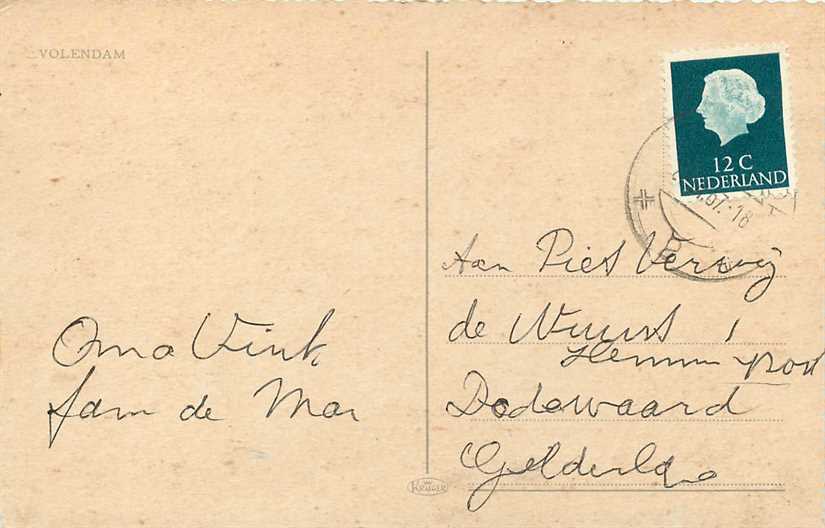 VOLENDAM
12 C
NEDERLAND
67.-18
Oma Vink
fam de Mar
Aan Piet Verwij
de Wuurst 1
Hemmen post
Dodewaard
Gelderland
KRÜGER